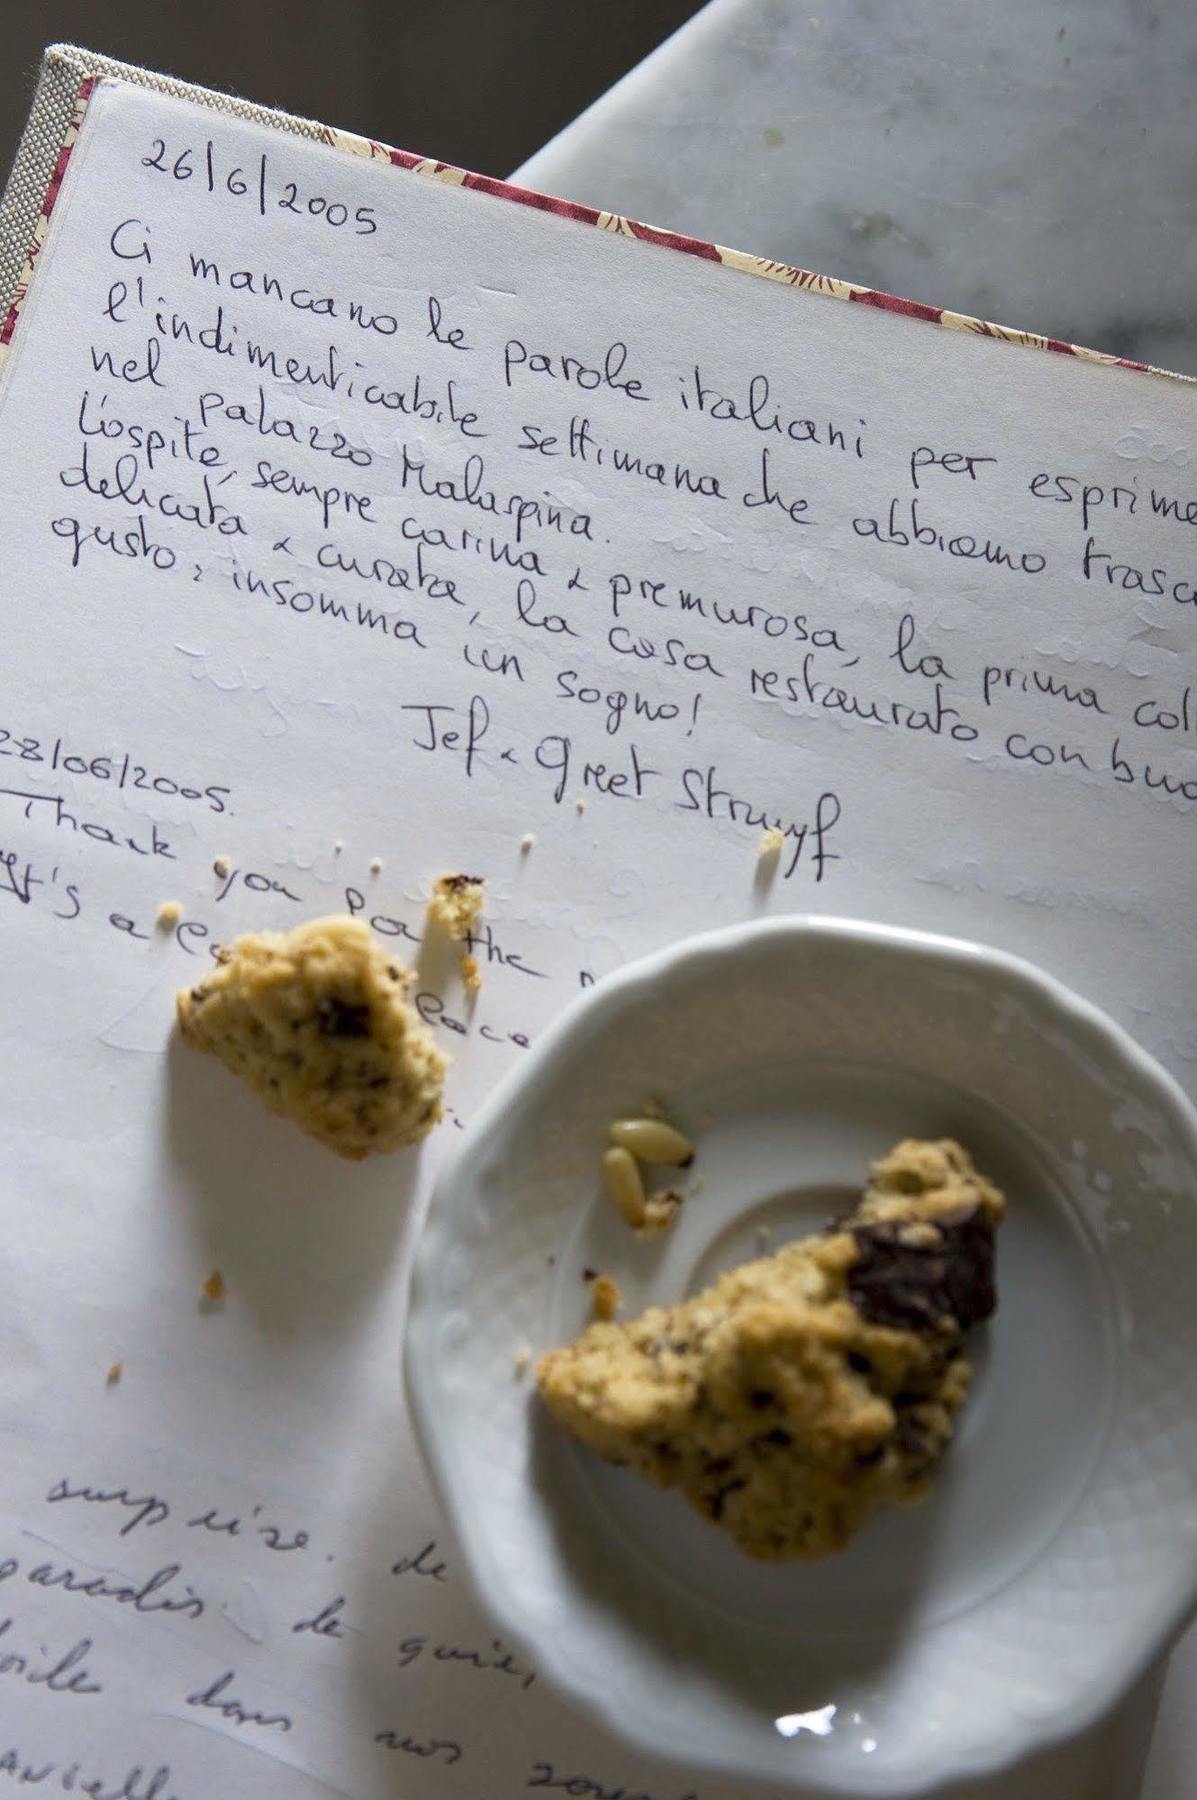 26/6/2005
Ci mancano le parole italiani per esprime
l'indimenticabile settimana che abbiamo trasc
nel palazzo Malaspina.
L'ospite, sempre carina & premurosa, la prima col
delicata & curata, la casa restaurato con buo
gusto, insomma un sogno!
Jef & Greet Struyf
28/06/2005.
Thank you for the
It's a
surprise. de
paradis. de
dans nos